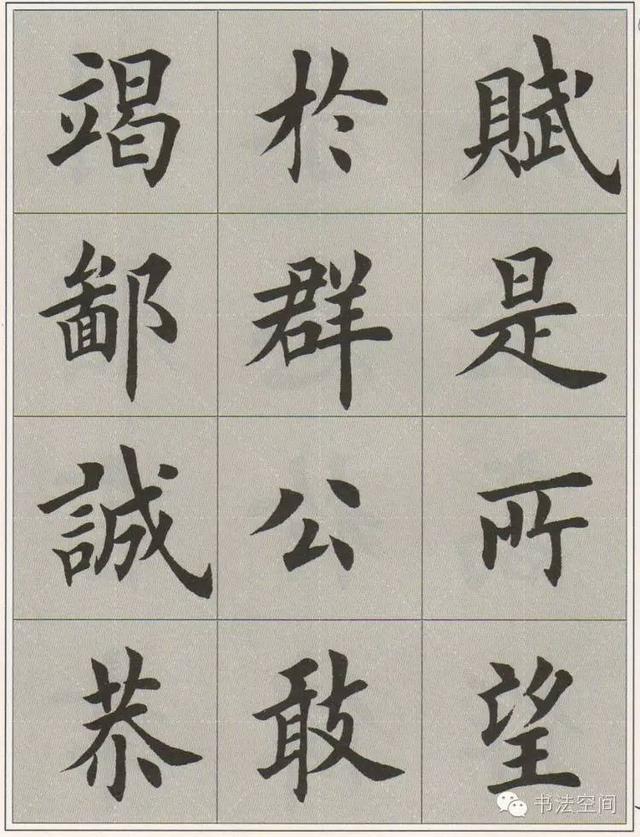 賦是所望
於群公敢
竭鄙誠恭
书法空间